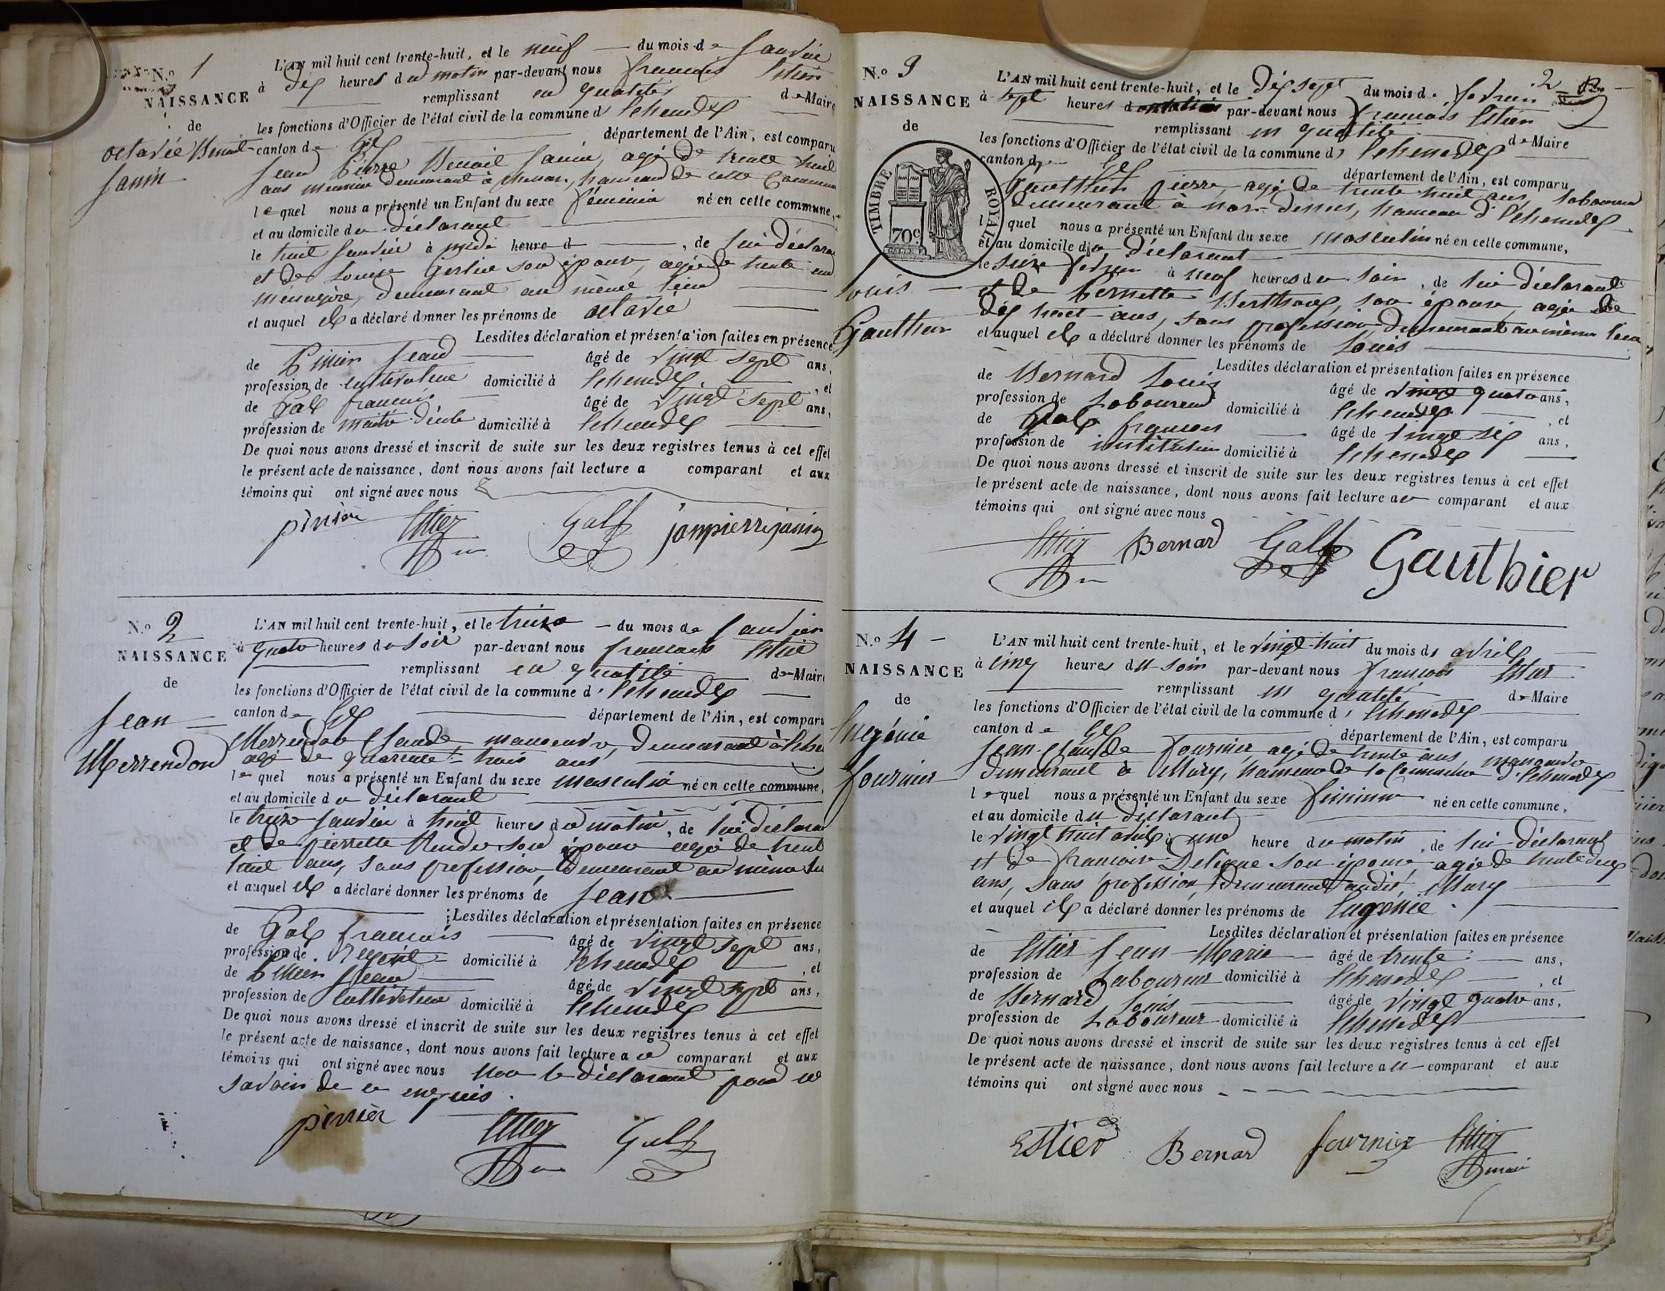 N.º 1
NAISSANCE
de
octavie Benoit
Janin
L'AN mil huit cent trente-huit, et le neuf du mois de Janvier
à dix heures du matin par-devant nous françois Estier
remplissant en qualité de Maire
les fonctions d'Officier de l'état civil de la commune d'Echenevex
canton de Gex département de l'Ain, est comparu
Jean Pierre Benoit Janin, agé de trente huit
ans demeurant à hameau de cette Commune
lequel nous a présenté un Enfant du sexe féminin né en cette commune,
et au domicile du déclarant
le huit Janvier à midi heure d , de lui déclarant
et de Louise son épouse, agée de trente un
menagère, demeurant au même lieu
et auquel il a déclaré donner les prénoms de octavie
Lesdites déclaration et présentation faites en présence
de Perrier Jean âgé de vingt sept ans,
profession de cultivateur domicilié à Echenevex , et
de Galf françois âgé de vingt sept ans,
profession de maitre d'école domicilié à Echenevex
De quoi nous avons dressé et inscrit de suite sur les deux registres tenus à cet effet
le présent acte de naissance, dont nous avons fait lecture a comparant et aux
témoins qui ont signé avec nous
perrier Estier Galf janpierrejanin
N.º 2
NAISSANCE
de
Jean
Merrendon
L'AN mil huit cent trente-huit, et le treize du mois de Janvier
à quatre heures du soir par-devant nous françois Estier
remplissant en qualité de Maire
les fonctions d'Officier de l'état civil de la commune d'Echenevex
canton de Gex département de l'Ain, est comparu
Merrendon Claude manoeuvre, demeurant à
agé de quarante trois ans
lequel nous a présenté un Enfant du sexe masculin né en cette commune,
et au domicile du déclarant
le treize Janvier à huit heures du matin, de lui déclarant
et de pierrette son épouse agée de trente
huit ans, sans profession, demeurant au même lieu
et auquel il a déclaré donner les prénoms de Jean
Lesdites déclaration et présentation faites en présence
de Galf françois âgé de vingt sept ans,
profession de Regent domicilié à Echenevex , et
de Perrier Jean âgé de vingt sept ans,
profession de cultivateur domicilié à Echenevex
De quoi nous avons dressé et inscrit de suite sur les deux registres tenus à cet effet
le présent acte de naissance, dont nous avons fait lecture a ce comparant et aux
témoins qui ont signé avec nous non le déclarant pour ne
savoir de ce enquis.
perrier Estier Galf
2
N.º 3
NAISSANCE
de
TIMBRE ROYAL
70c
Louis
Gauthier
L'AN mil huit cent trente-huit, et le dix sept du mois de fevrier
à sept heures du matin par-devant nous françois Estier
remplissant en qualité de Maire
les fonctions d'Officier de l'état civil de la commune d'Echenevex
canton de Gex département de l'Ain, est comparu
Gauthier pierre, agé de trente huit ans, laboureur
demeurant à hameau d'Echenevex
lequel nous a présenté un Enfant du sexe masculin né en cette commune,
et au domicile du déclarant
le seize fevrier à neuf heures du soir, de lui déclarant
et de Pernette son épouse agée de
dix huit ans, sans profession, demeurant au même lieu
et auquel il a déclaré donner les prénoms de Louis
Lesdites déclaration et présentation faites en présence
de Bernard Louis âgé de vingt quatre ans,
profession de Laboureur domicilié à Echenevex , et
de Galf françois âgé de vingt six ans,
profession de instituteur domicilié à Echenevex
De quoi nous avons dressé et inscrit de suite sur les deux registres tenus à cet effet
le présent acte de naissance, dont nous avons fait lecture au comparant et aux
témoins qui ont signé avec nous
Estier Bernard Galf Gauthier
N.º 4
NAISSANCE
de
Eugénie
fournier
L'AN mil huit cent trente-huit, et le vingt huit du mois d'avril
à cinq heures du soir par-devant nous françois Estier
remplissant en qualité de Maire
les fonctions d'Officier de l'état civil de la commune d'Echenevex
canton de Gex département de l'Ain, est comparu
Jean Claude fournier agé de trente ans, manoeuvre
demeurant à Mury, hameau de la Commune d'Echenevex
lequel nous a présenté un Enfant du sexe féminin né en cette commune,
et au domicile du déclarant
le vingt huit avril à une heure du matin, de lui déclarant
et de françoise son épouse agée de trente deux
ans, sans profession, demeurant audit Mury
et auquel il a déclaré donner les prénoms de Eugénie.
Lesdites déclaration et présentation faites en présence
de Estier Jean Marie âgé de trente ans,
profession de Laboureur domicilié à Echenevex , et
de Bernard Louis âgé de vingt quatre ans,
profession de Laboureur domicilié à Echenevex
De quoi nous avons dressé et inscrit de suite sur les deux registres tenus à cet effet
le présent acte de naissance, dont nous avons fait lecture au comparant et aux
témoins qui ont signé avec nous
Estier Bernard fournier Estier
maire